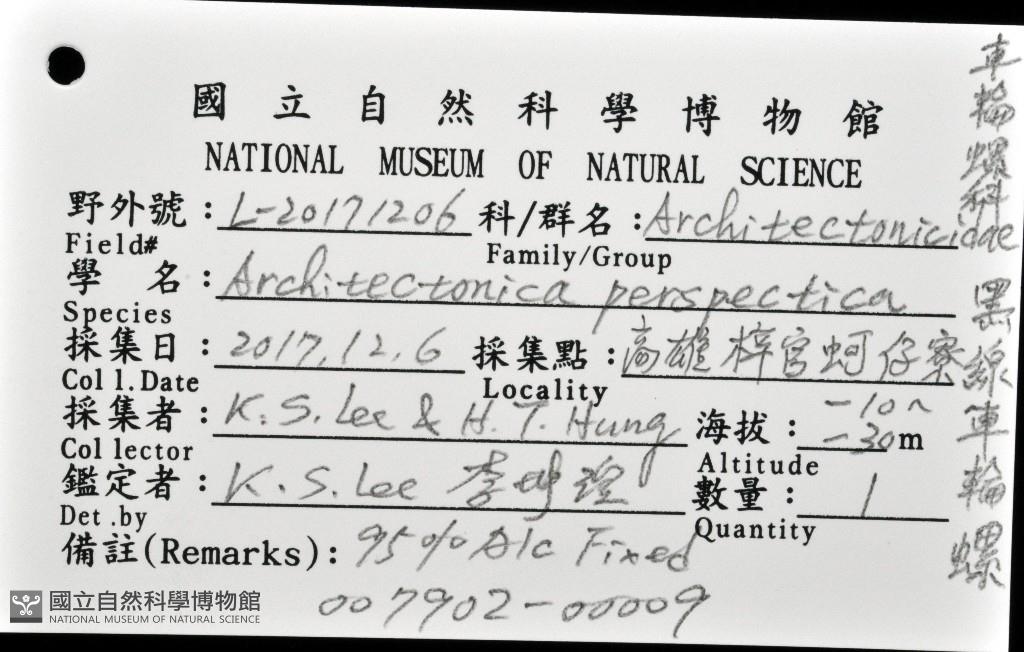 國立自然科學博物館
NATIONAL MUSEUM OF NATURAL SCIENCE
野外號：L-20171206 科/群名：Architectonicidae
Field# Family/Group
學 名：Architectonica perspectica
Species
採集日：2017.12.6 採集點：高雄梓官蚵仔寮
Coll.Date Locality
採集者：K.S.Lee & H.T.Hung 海拔：-10~-30m
Collector Altitude
鑑定者：K.S.Lee 李坤瑄 數量：1
Det.by Quantity
備註(Remarks)：95% Alc Fixed
007902-00009
車輪螺科
黑線車輪螺
國立自然科學博物館
NATIONAL MUSEUM OF NATURAL SCIENCE